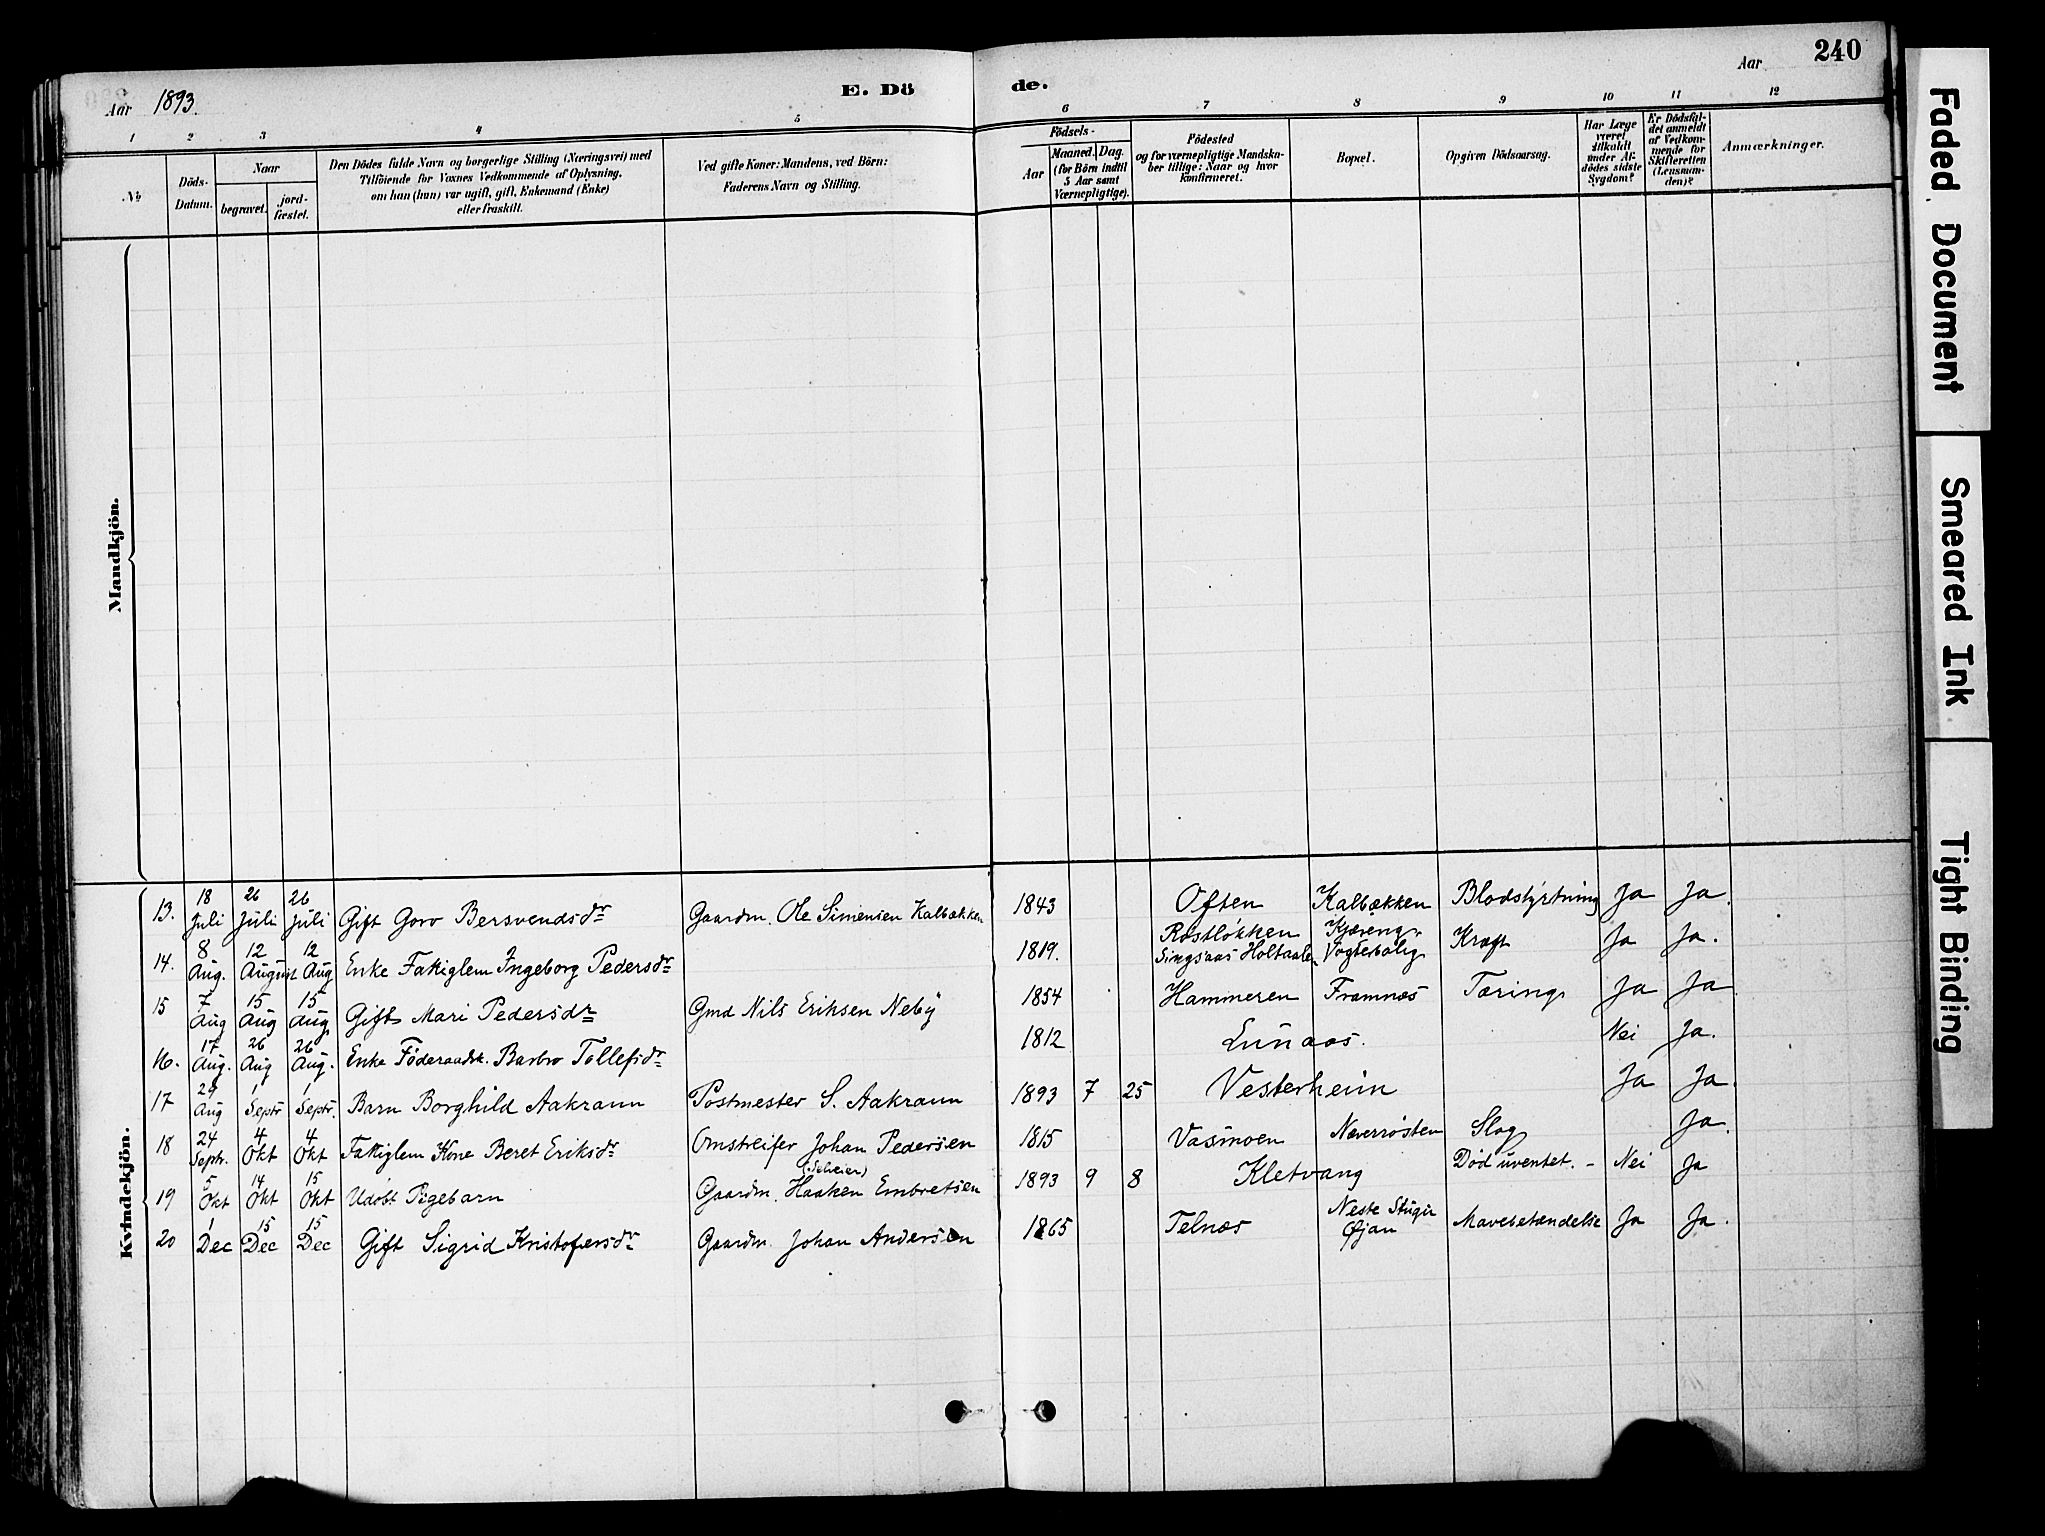 240
Aar 1893.
E. Dö de.
Aar
1 2 3 4 5 6 7 8 9 10 11 12
No
Döds-Datum.
Naar
begravet.
jord-fæstet.
Den Dödes fulde Navn og borgerlige Stilling (Næringsvei) med
Tilföiende for Voxnes Vedkommende af Oplysning,
om han (hun) var ugift, gift, Enkemand (Enke)
eller fraskilt.
Ved gifte Koner: Mandens, ved Börn:
Faderens Navn og Stilling.
Födsels-
Aar
Maaned. Dag.
(for Börn indtil
5 Aar samt
Værnepligtige).
Födested
og for værnepligtige Mandska-
ber tillige: Naar og hvor
konfirmeret.
Bopæl.
Opgiven Dödsaarsag.
Har Læge
været
tilkaldt
under Af-
dödes sidste
Sygdom?
Er Dödsfal-
det anmeldt
af Vedkom-
mende for
Skifteretten
(Lensman-
den)?
Anmærkninger.
Mandkjön.
Kvindekjön.
13. 18 Juli 26 Juli 26 Juli Gift Goro Bersvendsdr Gaardm. Ole Simensen Kalbækken 1843 Often Kalbækken Blodstyrtning Ja Ja.
14. 8 Aug. 12 August 12 Aug Enke Fatiglem Ingeborg Pedersdr 1819. Røstløkken Singsaas Holtaalen Kjæreng Vogterbolig Kræft Ja Ja.
15 7 Aug 15 Aug 15 Aug Gift Mari Pedersdr Gmd Nils Eriksen Neby 1854 Hammeren Framnæs Tæring Ja Ja
16. 17 Aug. 26 Aug 26 Aug. Enke Føderaadsk. Barbro Tollefsdr 1812 Lunaas. Nei Ja.
17 29 Aug 1 Septr 1 Septr. Barn Borghild Aakrann Postmester S. Aakrann 1893 7 25 Vesterheim Ja Ja.
18 24 Septr. 4 Okt 4 Okt Fatiglem Kone Beret Eriksdr Omstreifer Johan Pedersen 1815 Vasmoen Næverrøsten Slag Ja.
19 5 Okt 14 Okt 15 Okt Udøbt Pigebarn Gaardm. Haaken Embretsen 1893 9 8 Kletvang Død uventet. - Nei Ja
20 1 Dec 15 Dec 15 Dec Gift Sigrid Kristofersdr Gaardm. Johan Andersen 1865 Telnæs Neste Stugu Øjan Mavebetændelse Ja Ja.
Faded Document
Smeared Ink
Tight Binding